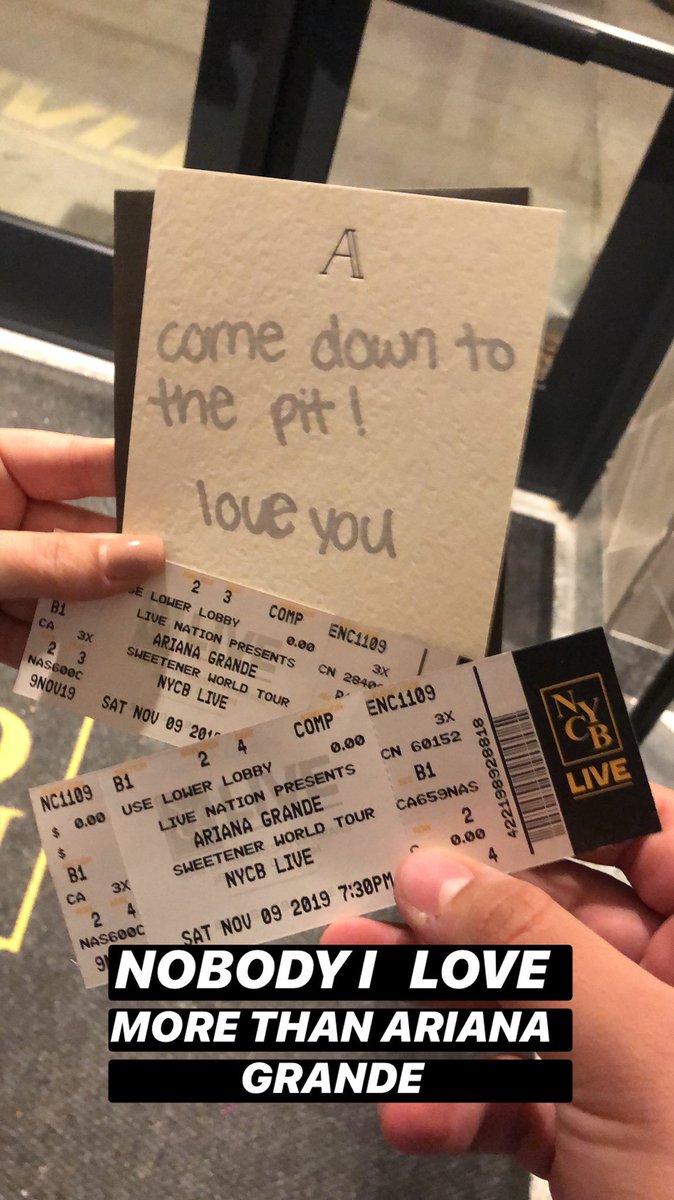 A
come down to
the pit!
love you
B1 2 3 COMP ENC1109
CA 3X USE LOWER LOBBY 0.00 3X
LIVE NATION PRESENTS
2 3 ARIANA GRANDE
NAS600C SWEETENER WORLD TOUR
9NOV19 NYCB LIVE
SAT NOV 09
NC1109 B1 2 4 COMP ENC1109
$ 0.00 USE LOWER LOBBY 0.00 3X
$ LIVE NATION PRESENTS CN 60152
B1 ARIANA GRANDE B1
CA 3X SWEETENER WORLD TOUR CA659NAS
2 4 NYCB LIVE 2
NAS600C 0.00
SAT NOV 09 2019 7:30PM 4
422198928818
NYCB
LIVE
NOBODY I LOVE
MORE THAN ARIANA
GRANDE